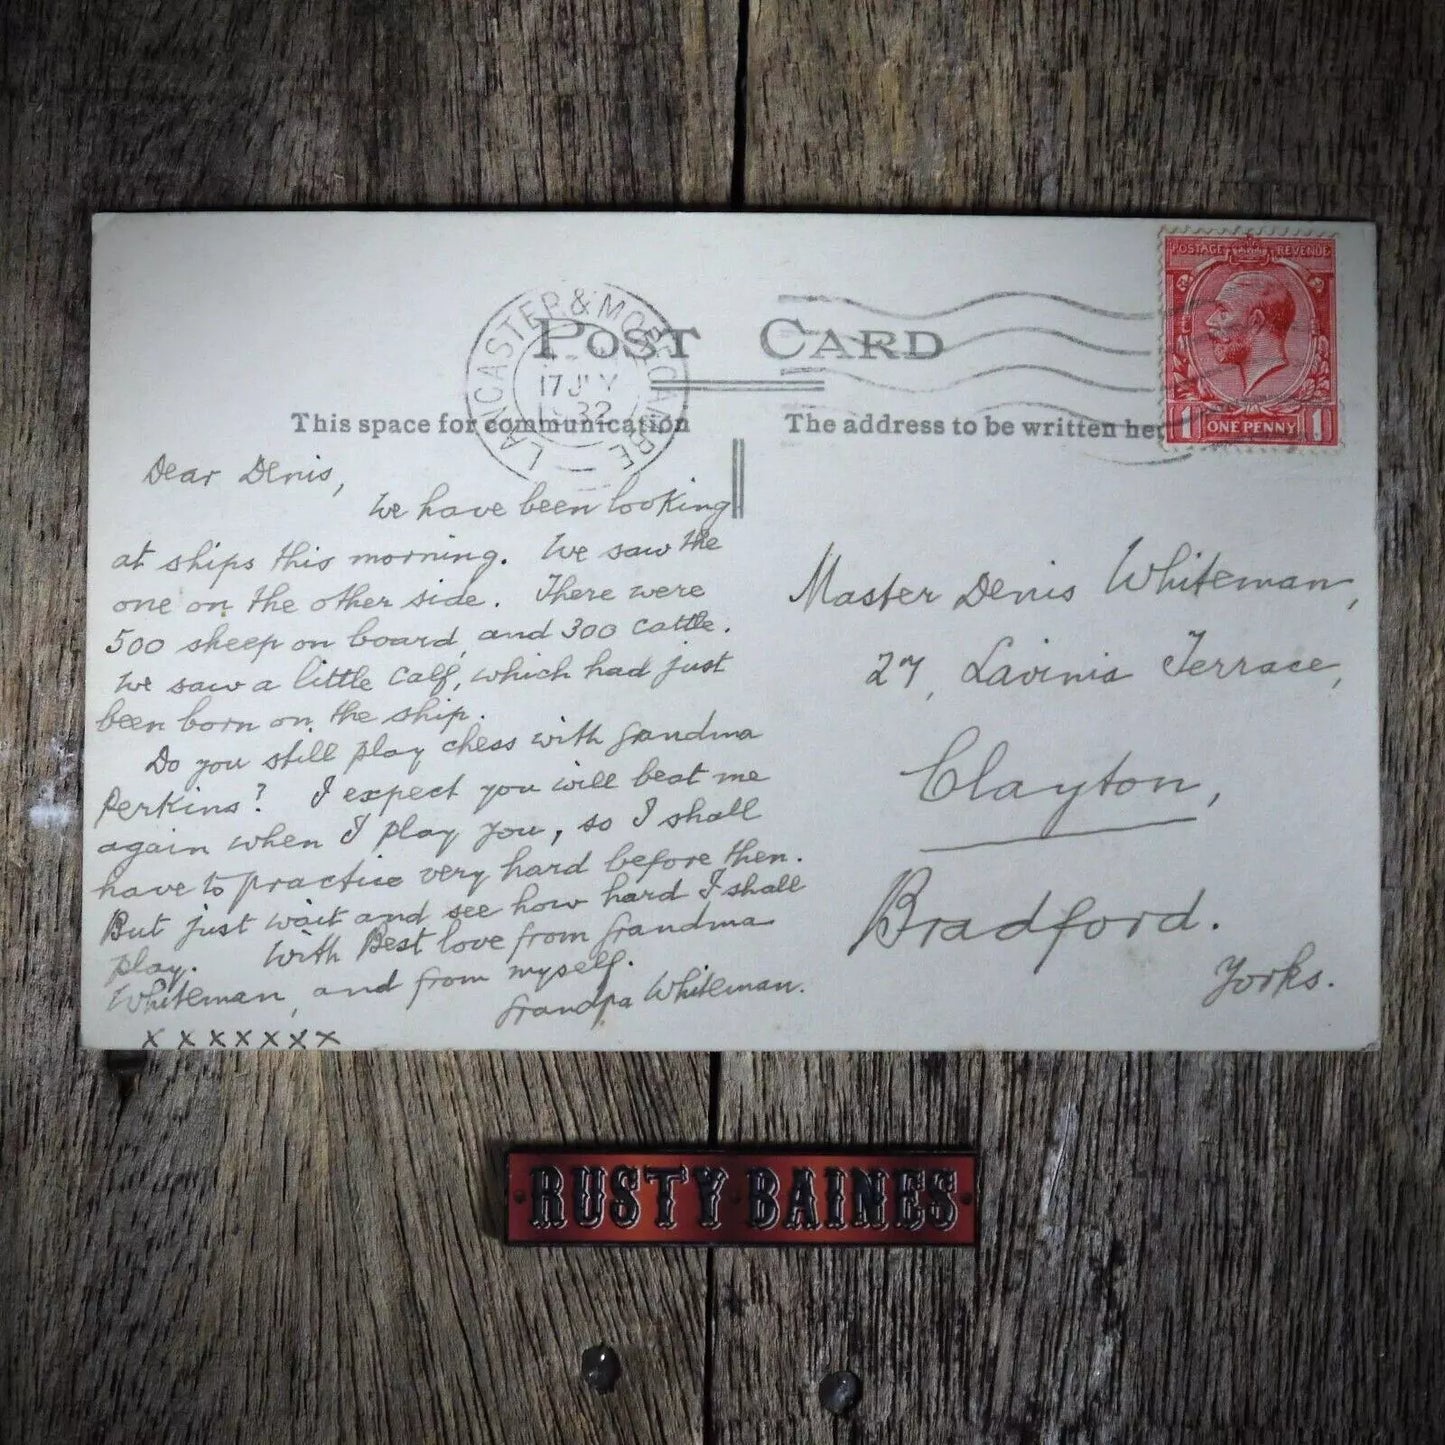 POST CARD
LANCASTER & MORECAMBE
17 JLY
32
This space for communication
The address to be written her
POSTAGE REVENUE
1 ONE PENNY 1
Dear Denis,
We have been looking
at ships this morning. We saw the
one on the other side. There were
500 sheep on board, and 300 cattle.
We saw a little calf, which had just
been born on the ship.
Do you still play chess with Grandma
Perkins? I expect you will beat me
again when I play you, so I shall
have to practice very hard before then.
But just wait and see how hard I shall
play. With Best love from Grandma
Whiteman, and from myself.
Grandpa Whiteman.
x x x x x x x
Master Denis Whiteman,
27, Lavinia Terrace,
Clayton,
Bradford.
Yorks.
RUSTY BAINES